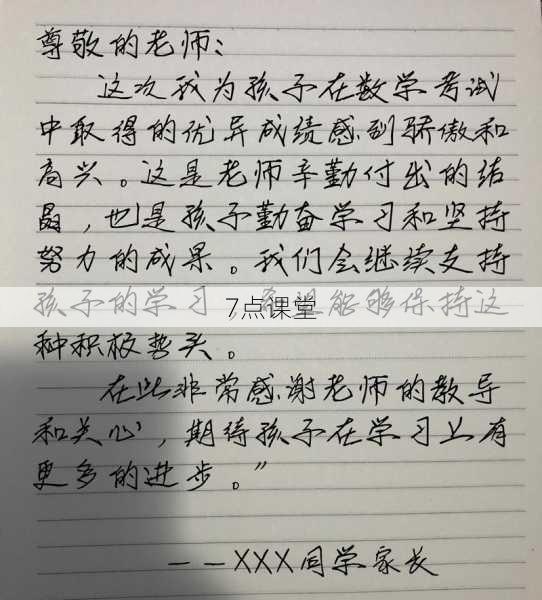 尊敬的老师：
这次我为孩子在数学考试
中取得的优异成绩感到骄傲和
高兴。这是老师辛勤付出的结
晶，也是孩子勤奋学习和坚持
努力的成果。我们会继续支持
孩子的学习，希望能够保持这
7点课堂
种积极势头。
在此非常感谢老师的教导
和关心，期待孩子在学习上有
更多的进步。”
——XXX同学家长